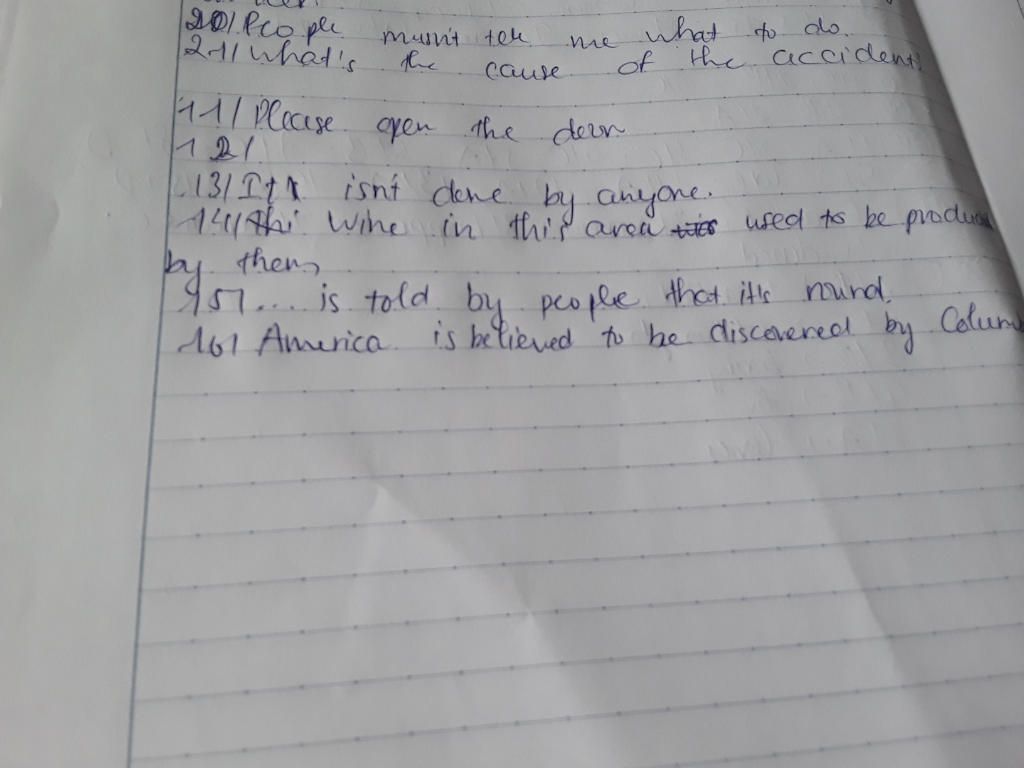 20/ People musn't tell me what to do.
21/ What's the cause of the accident
11/ Please open the door
12/
13/ It isn't done by anyone.
14/ Wine in this area used to be produc
by them
15/ ... is told by people that it's round.
16/ America is believed to be discovered by Colum